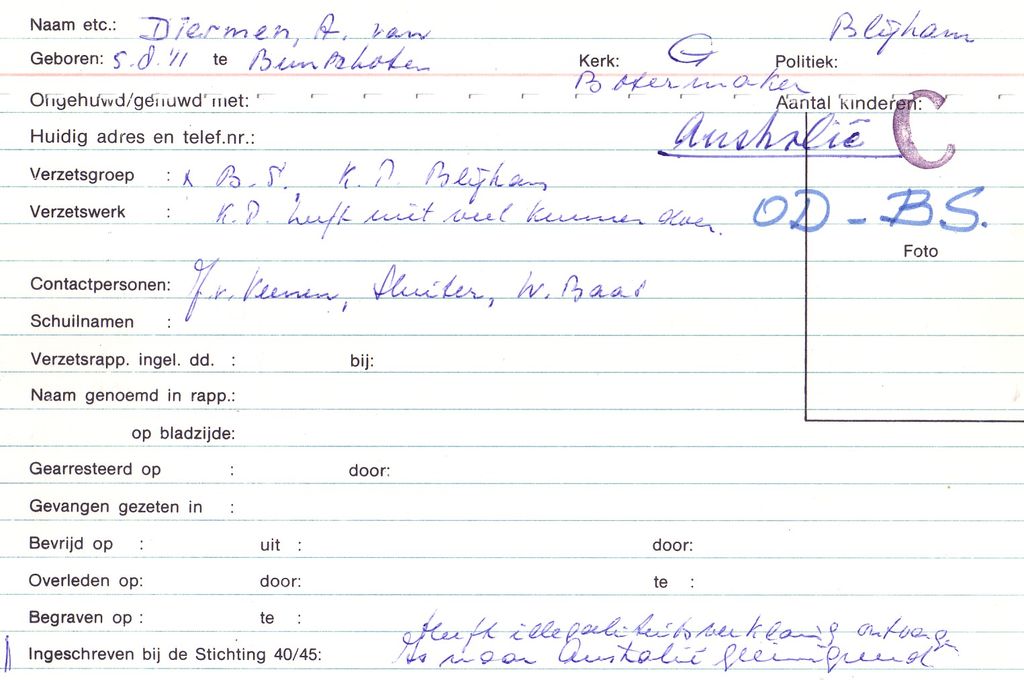 Naam etc.: Diermen, A. van Blijham
Geboren: 5.8.'11 te Bunschoten Kerk: G Politiek:
Botermaker
Ongehuwd/gehuwd met: Aantal kinderen: C
Huidig adres en telef.nr.: Australië
Verzetsgroep : x B.S. K.P. Blijham
Verzetswerk : K.P. heeft niet veel kunnen doen. OD - BS.
Foto
Contactpersonen: J. v. Keenen, Sluiter, W. Baas
Schuilnamen :
Verzetsrapp. ingel. dd. : bij:
Naam genoemd in rapp.:
op bladzijde:
Gearresteerd op : door:
Gevangen gezeten in :
Bevrijd op : uit : door:
Overleden op: door: te :
Begraven op : te :
Heeft illegaliteitsverklaring ontvang.
Ingeschreven bij de Stichting 40/45: Is naar Australië geëmigreerd